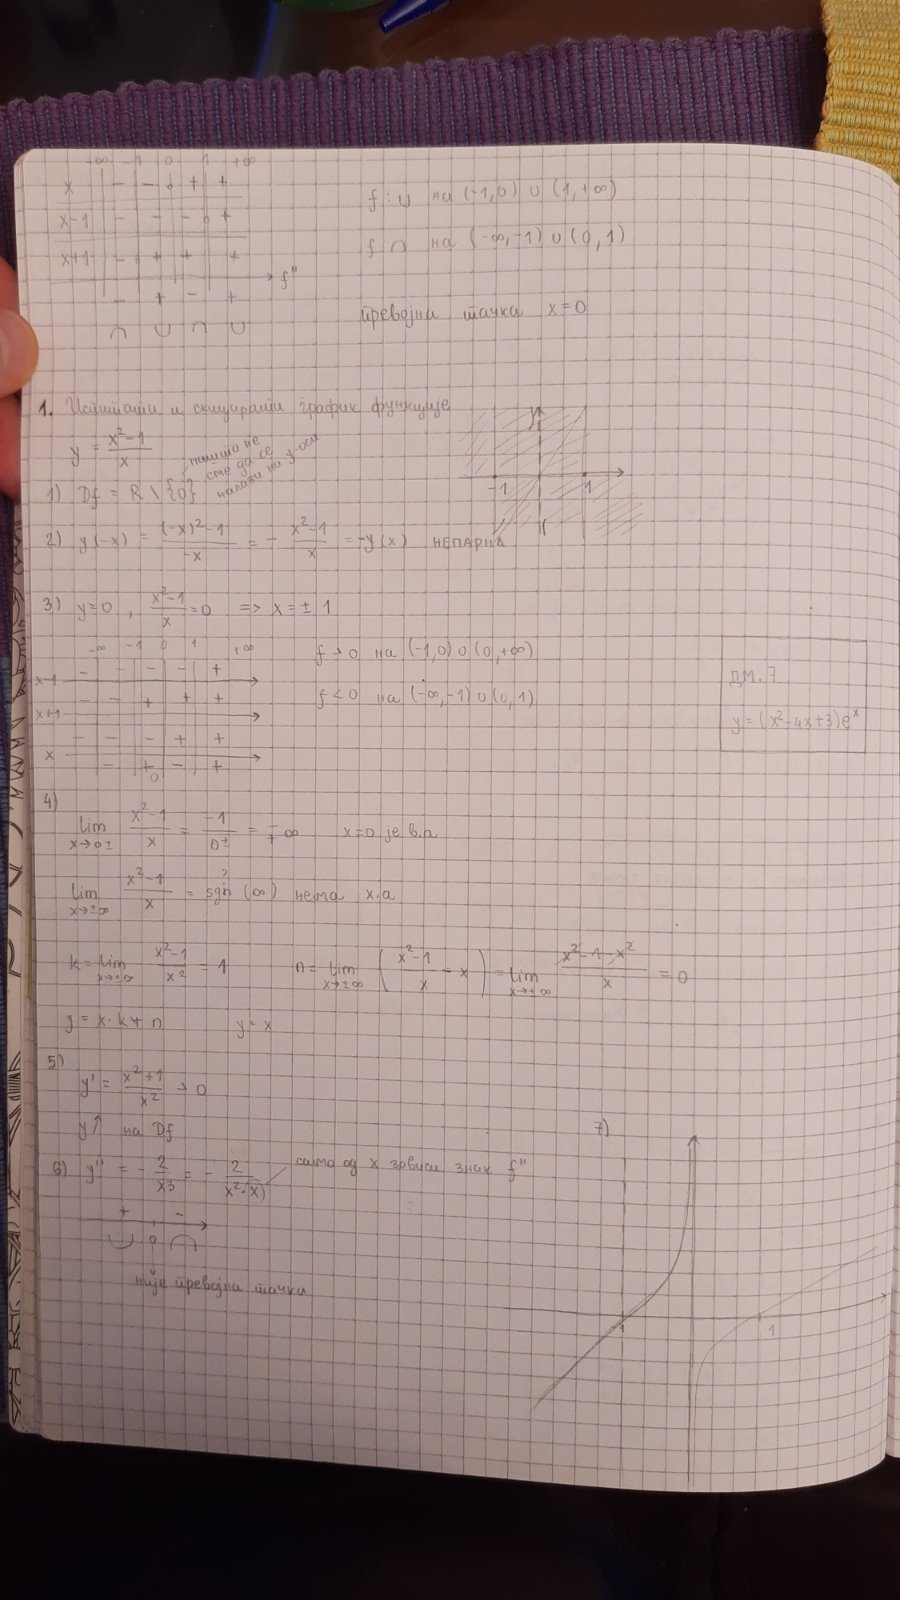 -∞ -1 0 1 +∞
x - - + +
x-1 - - - +
x+1 - + + +
f"
- + - +
∩ ∪ ∩ ∪
f: ∪ на (-1,0) ∪ (1,+∞)
f ∩ на (-∞,-1) ∪ (0,1)
превојна тачка x=0
1. Испитати и скицирати график функције
y = (x²-1)/x
ништа не
сме да се
налази на y-оси
1) Df = R \ {0}
-1 1
2) y(-x) = ((-x)²-1)/(-x) = - (x²-1)/x = -y(x) НЕПАРНА
3) y=0, (x²-1)/x = 0 => x = ± 1
-∞ -1 0 1 +∞
x-1 - - - - +
x+1 - - + + +
x - - - + +
- + - +
0
f > 0 на (-1,0) ∪ (0,+∞)
f < 0 на (-∞,-1) ∪ (0,1)
дм. 7
y = (x²-4x+3)eˣ
4)
lim x→0± (x²-1)/x = -1/0± = ∓∞ x=0 је в.а
lim x→±∞ (x²-1)/x = sgn (∞) нема х.а
k = lim x→±∞ (x²-1)/x² = 1 n = lim x→±∞ ((x²-1)/x - x) = lim x→±∞ (x²-1-x²)/x = 0
y = x·k+n y = x
5)
y' = (x²+1)/x² > 0
y↑ на Df
6) y" = - 2/x³ = - 2/(x²·x) само од x зависи знак f"
+ -
∪ 0 ∩
није превојна тачка
7)
-1 1